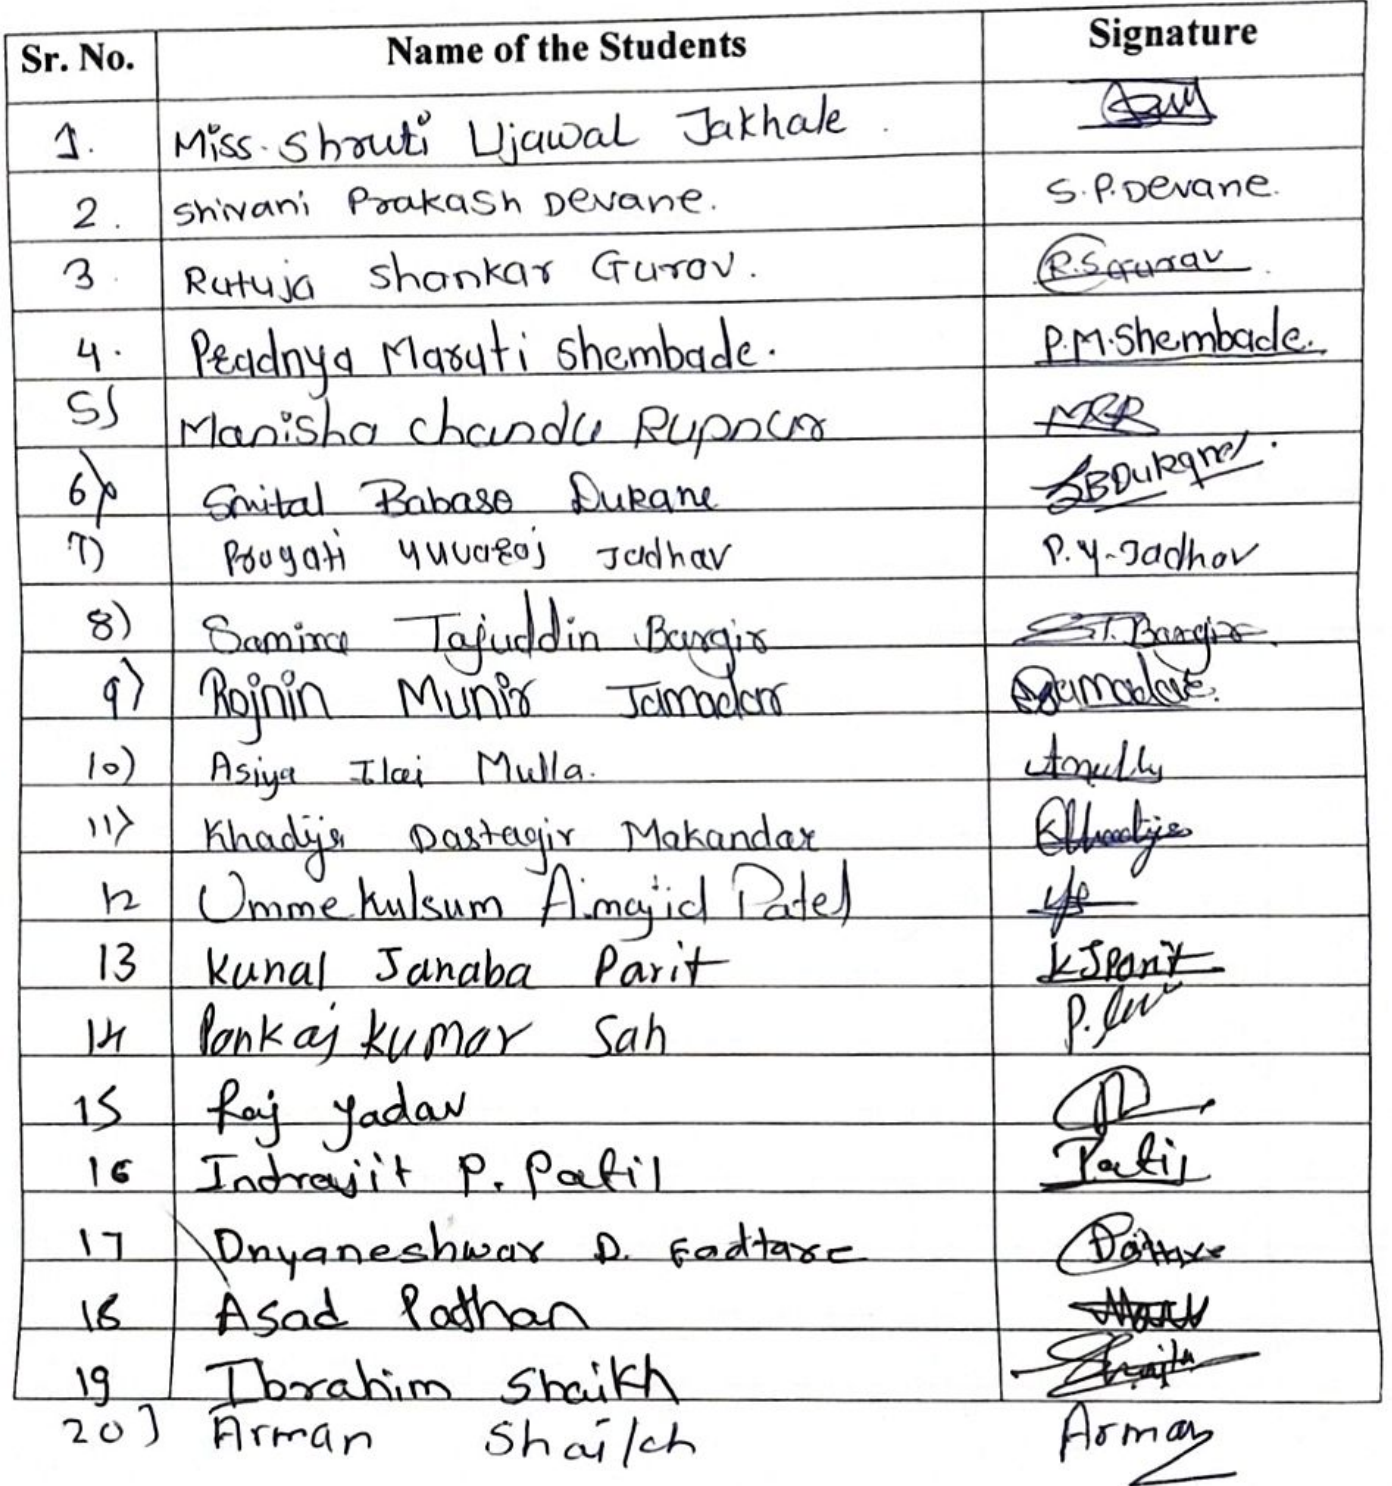 Sr. No. Name of the Students Signature
1. Miss. Shruti Ujawal Jakhale.
2. Shivani Prakash Devane. S.P.Devane.
3. Rutuja Shankar Gurov. R.S Gurav.
4. Pradnya Maruti Shembade. P.M.Shembade.
5) Manisha Chandu Rupnur MCR
6) Smital Babaso Dukane SBDukane.
7) Pragati Yuvaraj Jadhav P.Y-Jadhav
8) Samina Tajuddin Bargir S.T.Bargir
9) Rojnin Munir Jamadar Jamadar.
10) Asiya Ilai Mulla. Amulla
11) Khadija Dastagir Makandar Khadija
12 Umme kulsum A.majid Patel
13 Kunal Janaba Parit KJParit
14 Pankaj kumar Sah P.
15 Raj Yadav
16 Indrajit P. Patil Patil
17 Dnyaneshwar D. Fadtare
18 Asad Pathan
19 Ibrahim Shaikh Shaikh
20] Arman Shaikh Arman